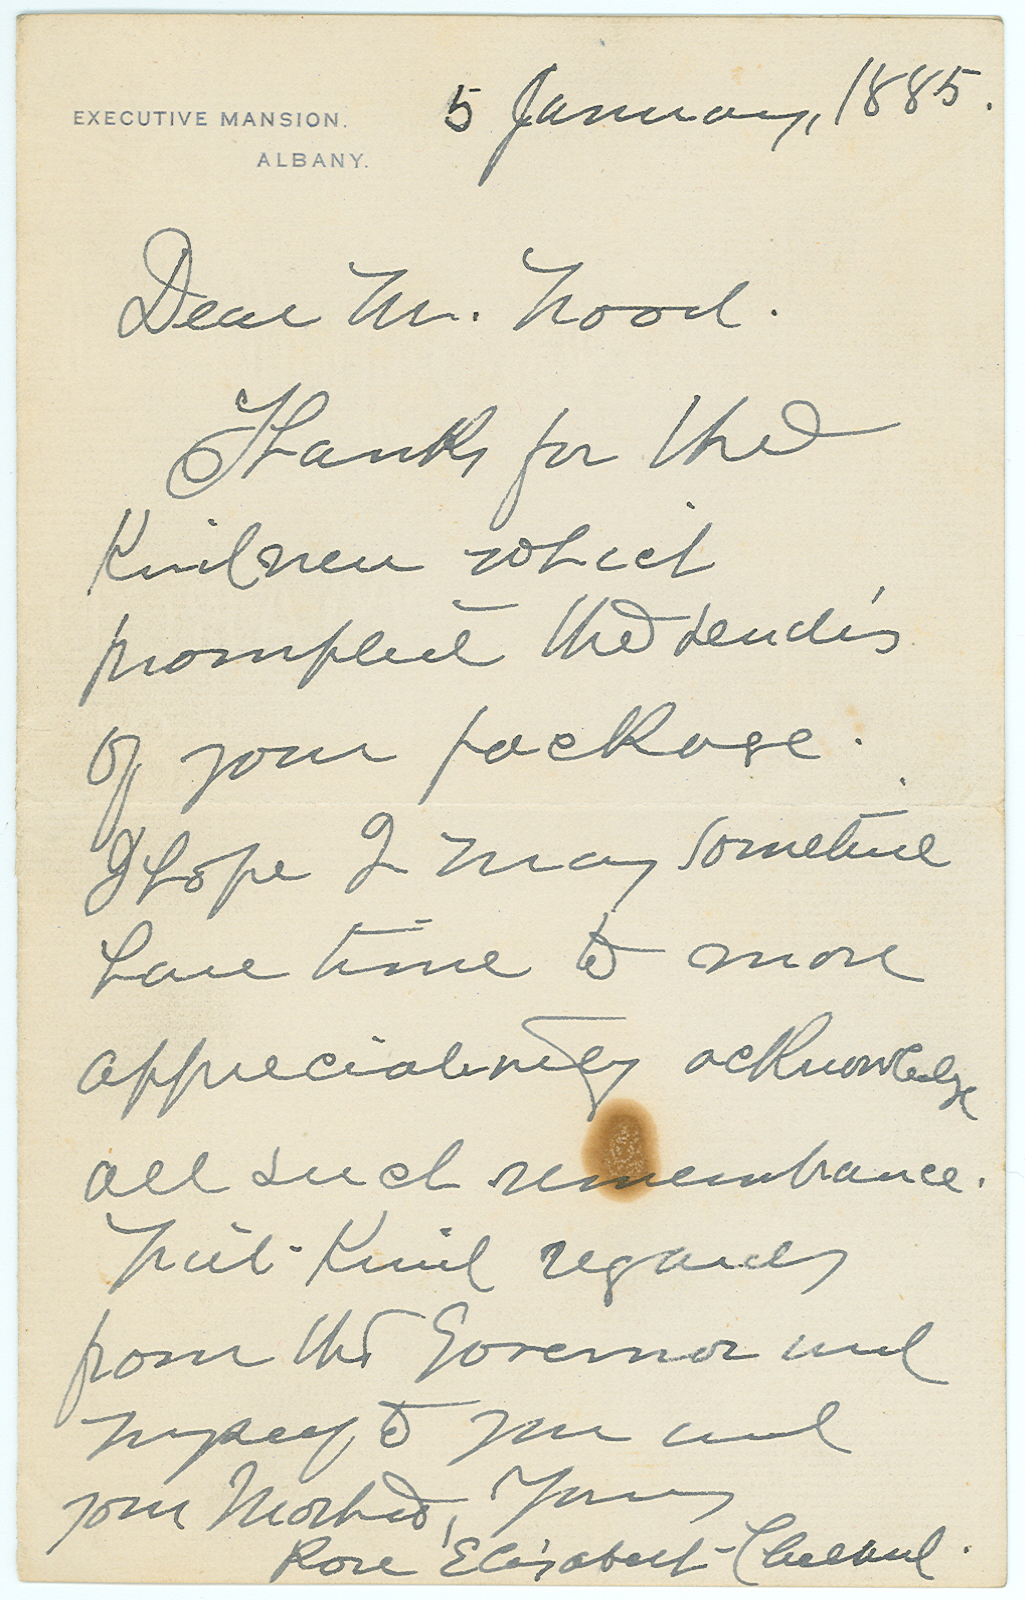 EXECUTIVE MANSION.
ALBANY.
5 January, 1885.
Dear Mr. Wood.
Thanks for the
kindness which
prompted the sending
of your package.
I hope I may sometime
have time to more
appreciatively acknowledge
all such remembrance.
With kind regards
from the Governor and
myself to you and
your Mother, Yours
Rose Elizabeth Cleveland.